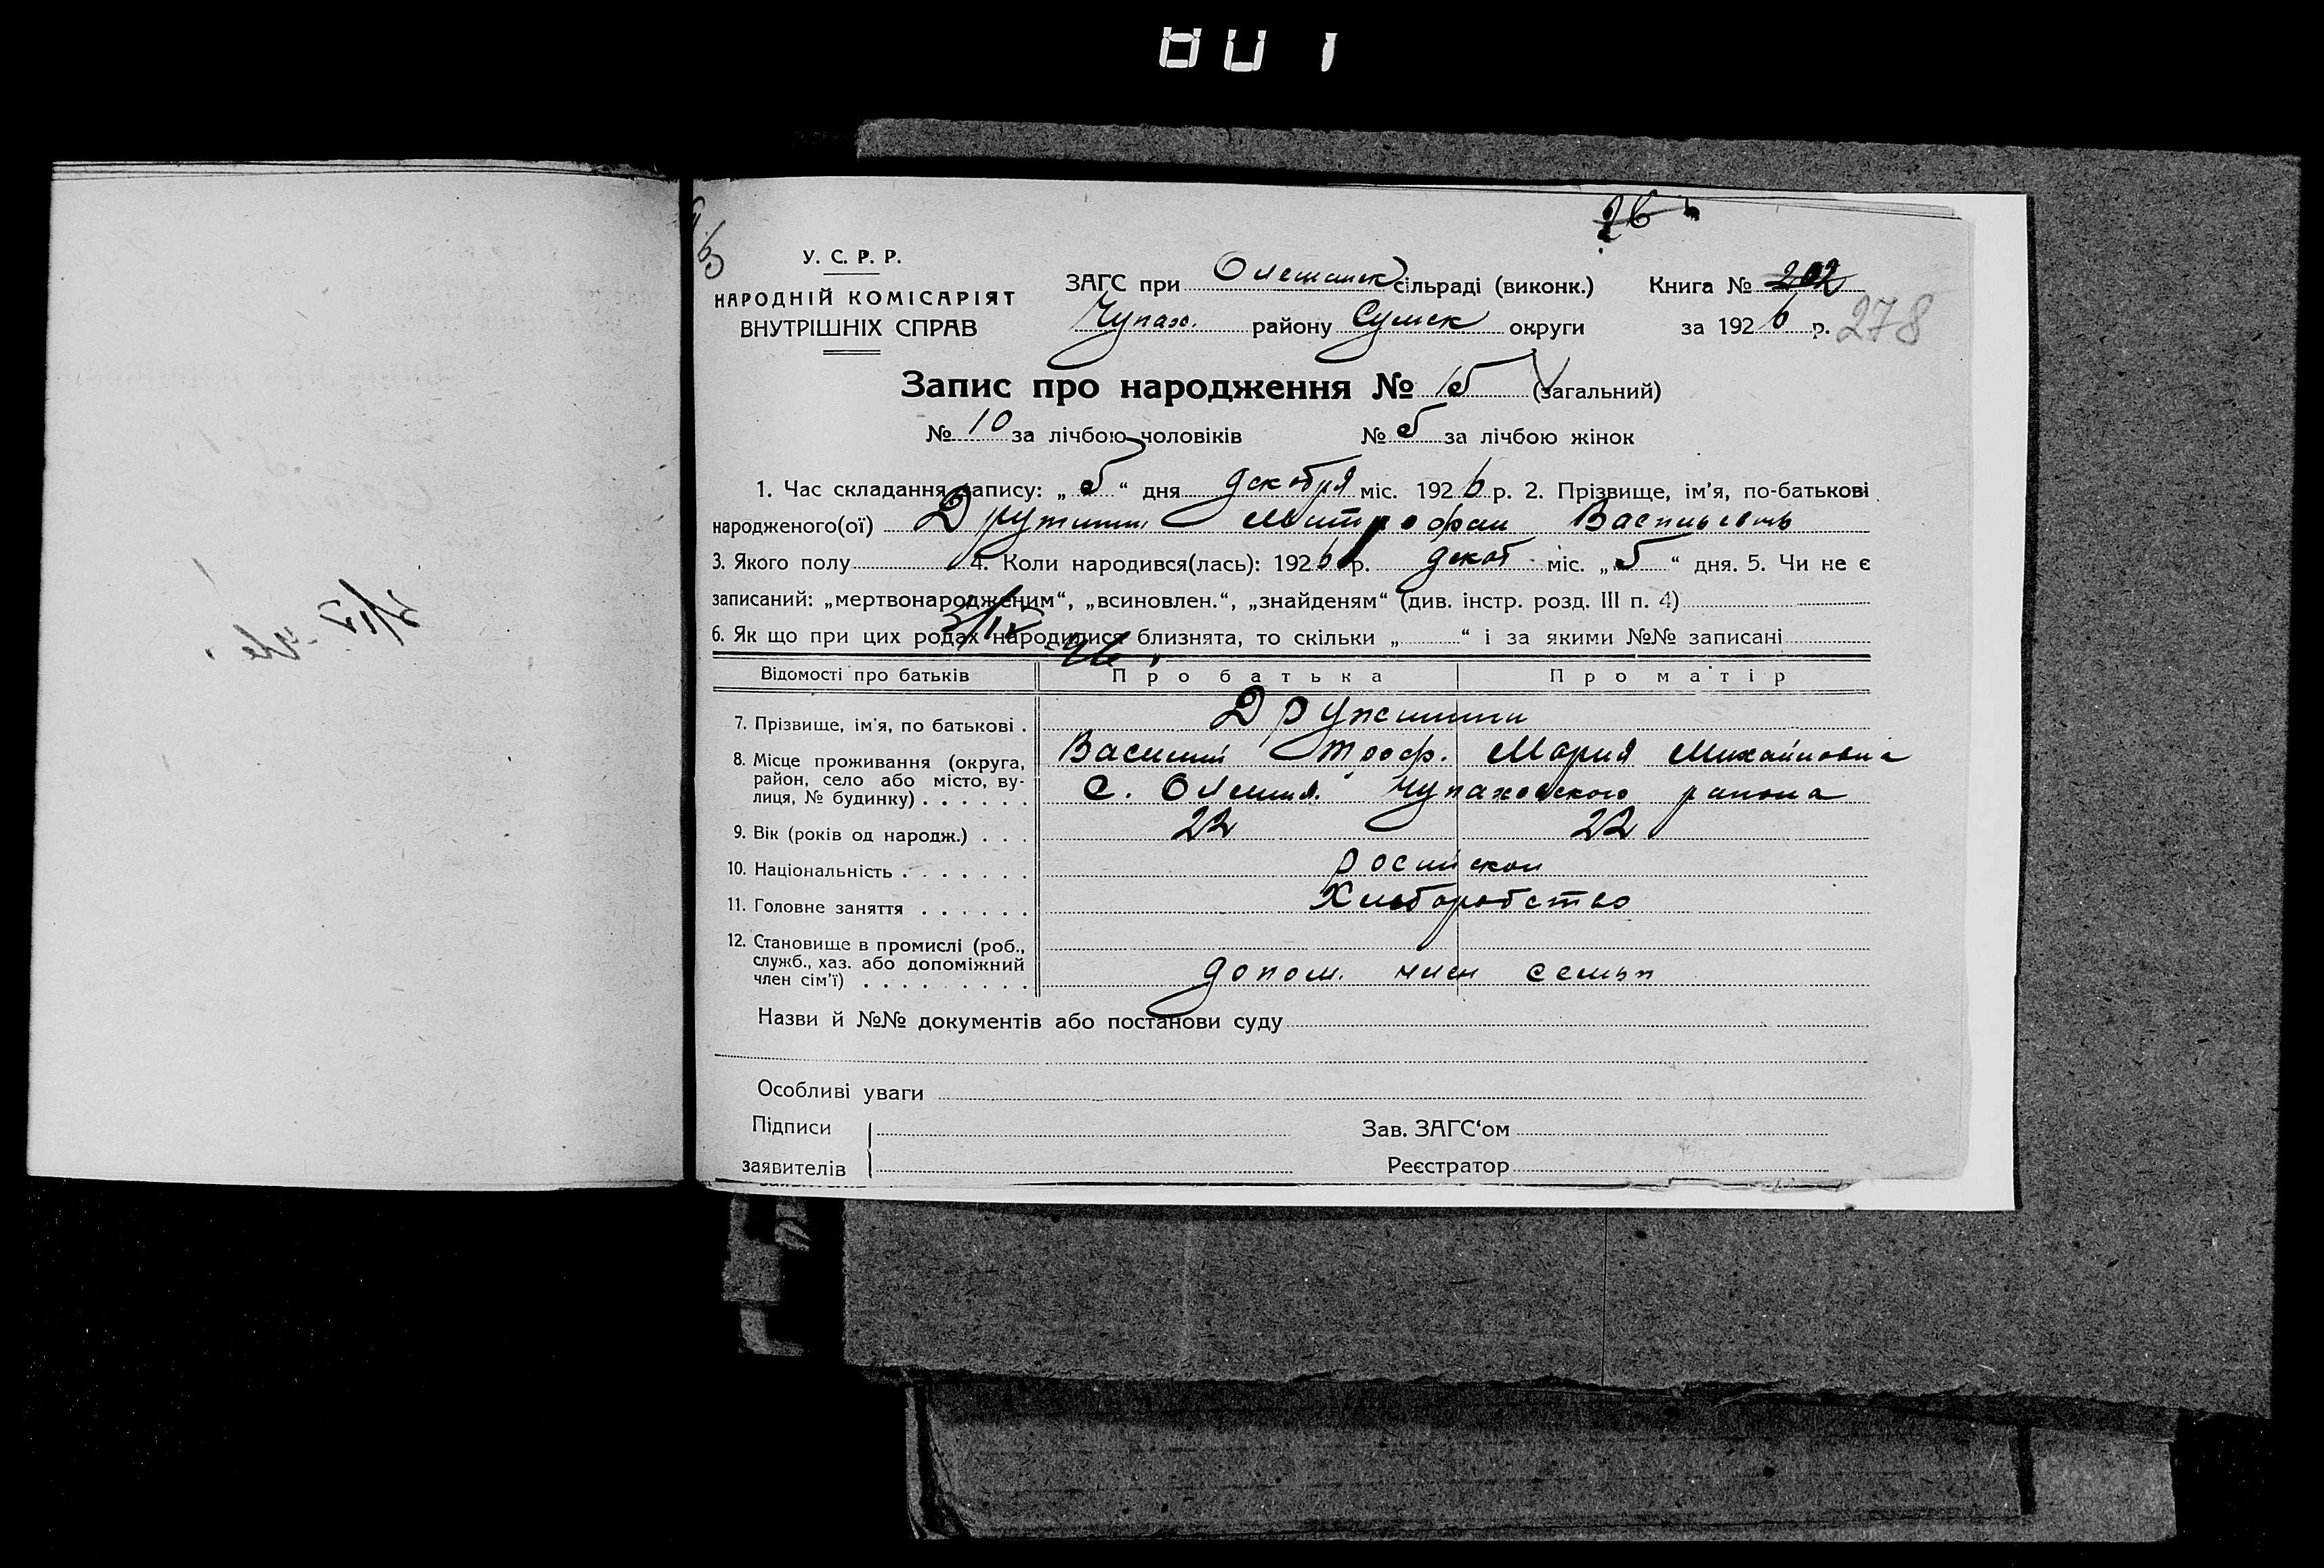 У. С. Р. Р.
НАРОДНІЙ КОМІСАРІЯТ
ВНУТРІШНІХ СПРАВ
ЗАГС при Олешанск сільраді (виконк.)
Чупах. району Сумск округи
Книга № 202
за 1926 р. 278
Запис про народження № 15 (загальний)
№ 10 за лічбою чоловіків № 5 за лічбою жінок
1. Час складання запису: „ 5 “ дня декабря міс. 1926 р. 2. Прізвище, ім’я, по-батькові
народженого(ої) Дружинин Митрофан Васильевич
3. Якого полу 4. Коли народився(лась): 1926 р. декаб міс. „ 5 “ дня. 5. Чи не є
записаний: „мертвонародженим“, „всиновлен.“, „знайденям“ (див. інстр. розд. III п. 4)
6. Як що при цих родах народилися близнята, то скільки „ “ і за якими №№ записані
Відомості про батьків Про батька Про матір
7. Прізвище, ім’я, по батькові . Дружинин
Василий Мария Михайловна
8. Місце проживання (округа, район, село або місто, вулиця, № будинку) . . . . . . С. Олешня. Чупаховского района
9. Вік (років од народж.) . . . 22 22
10. Національність . . . . . . . російской
11. Головне заняття . . . . . . Хлеборобство
12. Становище в промислі (роб., служб., хаз. або допоміжний член сім’ї) . . . . . . . . . допом. член семьи
Назви й №№ документів або постанови суду
Особливі уваги
Підписи
заявителів
Зав. ЗАГС‘ом
Реєстратор